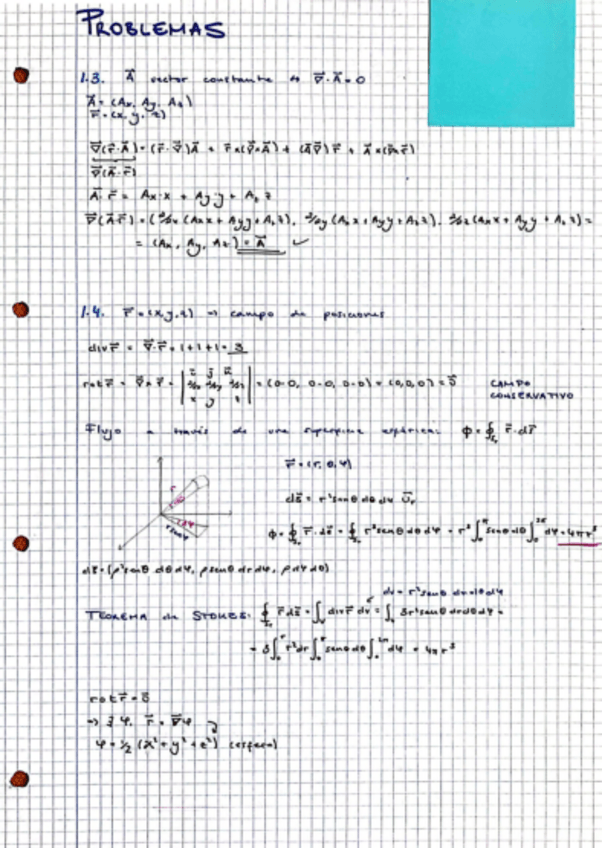 PROBLEMAS
1.3. A⃗ vector constante ⇒ ∇⃗·A⃗=0
A⃗=(Ax, Ay, Az)
r⃗=(x,y,z)
∇⃗(r⃗·A⃗)=(r⃗·∇⃗)A⃗ + r⃗×(∇⃗×A⃗) + (A⃗∇⃗)r⃗ + A⃗×(∇⃗×r⃗)
∇⃗(A⃗·r⃗)
A⃗·r⃗ = Ax·x + Ay·y + Az z
∇⃗(A⃗·r⃗)=(∂/∂x (Axx + Ayy + Az z), ∂/∂y (Axx + Ayy + Az z), ∂/∂z (Axx + Ayy + Az z) =
= (Ax, Ay, Az) = A⃗ ✓
1.4. r⃗=(x,y,z) ⇒ campo de posiciones
div r⃗ = ∇⃗·r⃗ = 1+1+1 = 3
rot r⃗ = ∇⃗×r⃗ = | i⃗ j⃗ k⃗ ; ∂/∂x ∂/∂y ∂/∂z ; x y z | = (0-0, 0-0, 0-0) = (0,0,0) = 0⃗ CAMPO CONSERVATIVO
Flujo a través de una superficie esférica: ϕ=∮ r⃗·ds⃗
r⃗=(r,θ,φ)
ds⃗ = r² senθ dθ dφ u⃗r
ϕ=∮ r⃗·ds⃗ = ∮ r³ senθ dθ dφ = r³ ∫₀^π senθ dθ ∫₀^2π dφ = 4πr³
ds⃗=(ρ² senθ dθ dφ, ρ senθ dr dφ, ρ dr dθ)
dv = r² senθ dr dθ dφ
TEOREMA de STOKES: ∮ r⃗ ds⃗ = ∫ div r⃗ dv = ∫ 3r² senθ dr dθ dφ =
= 3 ∫₀^r r² dr ∫₀^π senθ dθ ∫₀^2π dφ = 4πr³
rot r⃗ = 0⃗
⇒ ∃ φ, r⃗ = ∇⃗φ
φ = 1/2 (x² + y² + z²) (esfera)